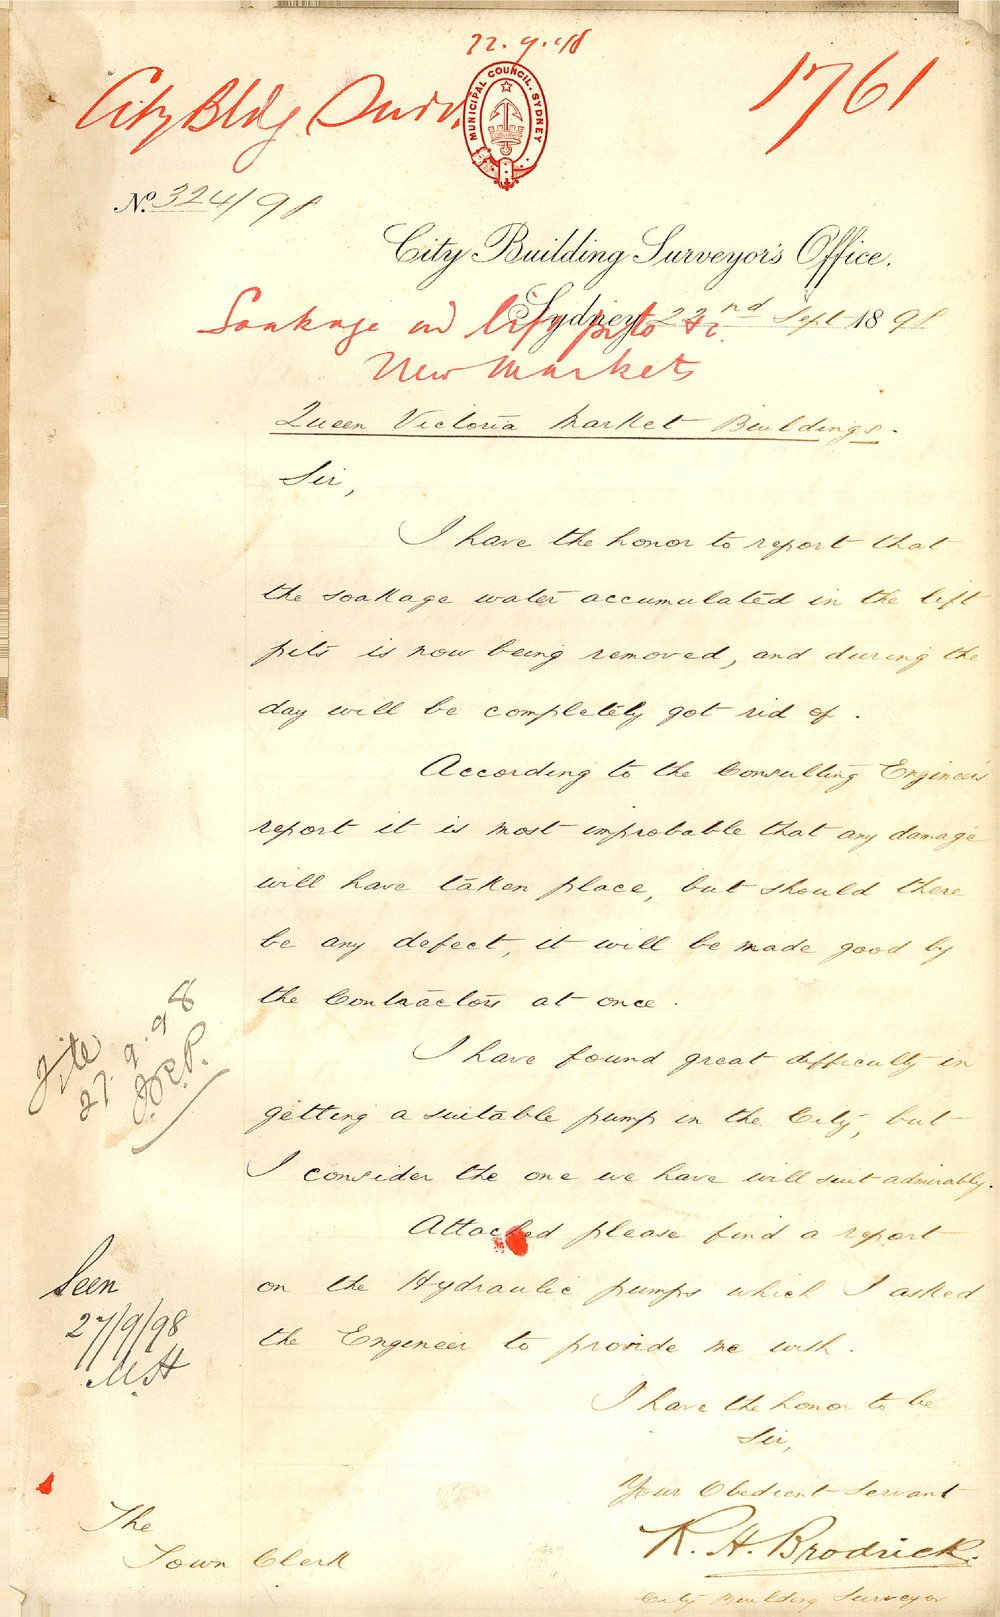 22.9.98
City Bldg Survr.
1761
MUNICIPAL COUNCIL. SYDNEY
No. 324/98
City Building Surveyor's Office.
Sydney 22nd Sept 1898
Soakage in lift pits &c.
New Markets
Queen Victoria Market Buildings.
Sir,
I have the honor to report that
the soakage water accumulated in the lift
pits is now being removed, and during the
day will be completely got rid of.
According to the Consulting Engineers
report it is most improbable that any damage
will have taken place, but should there
be any defect, it will be made good by
the Contractors at once.
I have found great difficulty in
getting a suitable pump in the City, but
I consider the one we have will suit admirably.
Attached please find a report
on the Hydraulic pumps which I asked
the Engineer to provide me with.
I have the honor to be
Sir,
Your Obedient Servant
R. H. Brodrick.
City Building Surveyor
The
Town Clerk
File
27.9.98
Seen
27/9/98